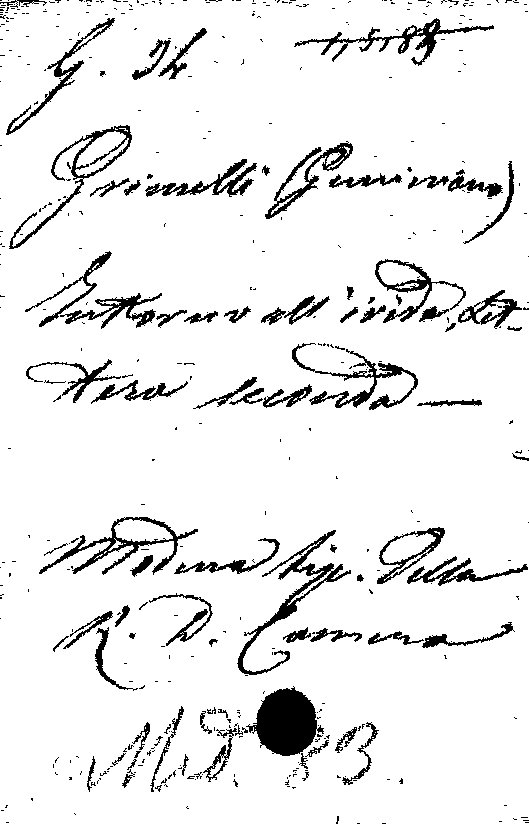 G. 34
Grimelli (Geminiano)
Intorno all'iride, Let-
tera seconda —
Modena tip. Della
R. D. Camera
Med. 83.